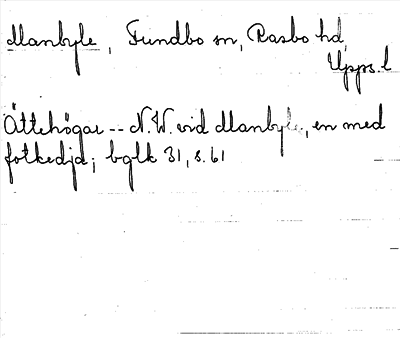 Manbyle, Funbo sn, Rasbo hd,
Upps. l
Ättehögar -- N.W. vid Manbyle, en med
fotkedja; bglk 31, s. 61